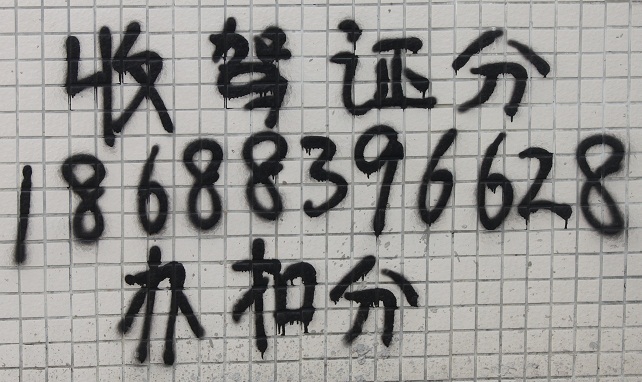 收驾证分
18688396628
办扣分